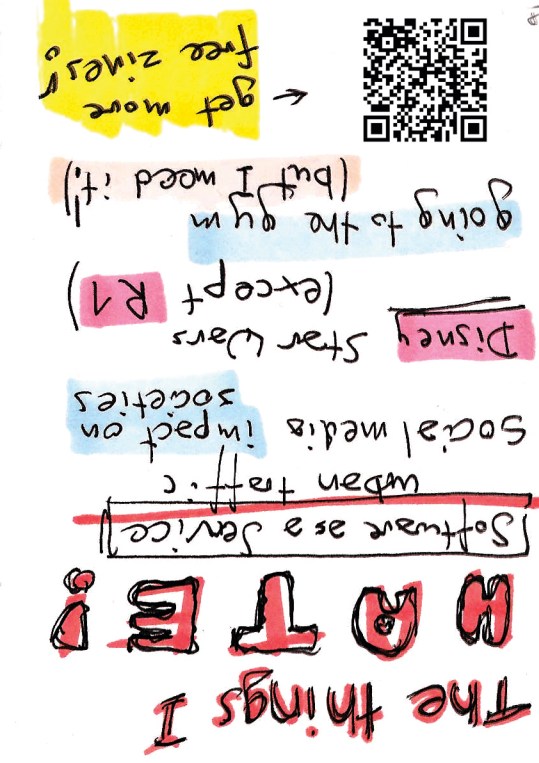 The things I
HATE!
Software as a Service
urban traffic
Social media impact on
societies
Disney Star Wars
(except R1)
going to the gym
(but I need it!)
→ get more
free zines!